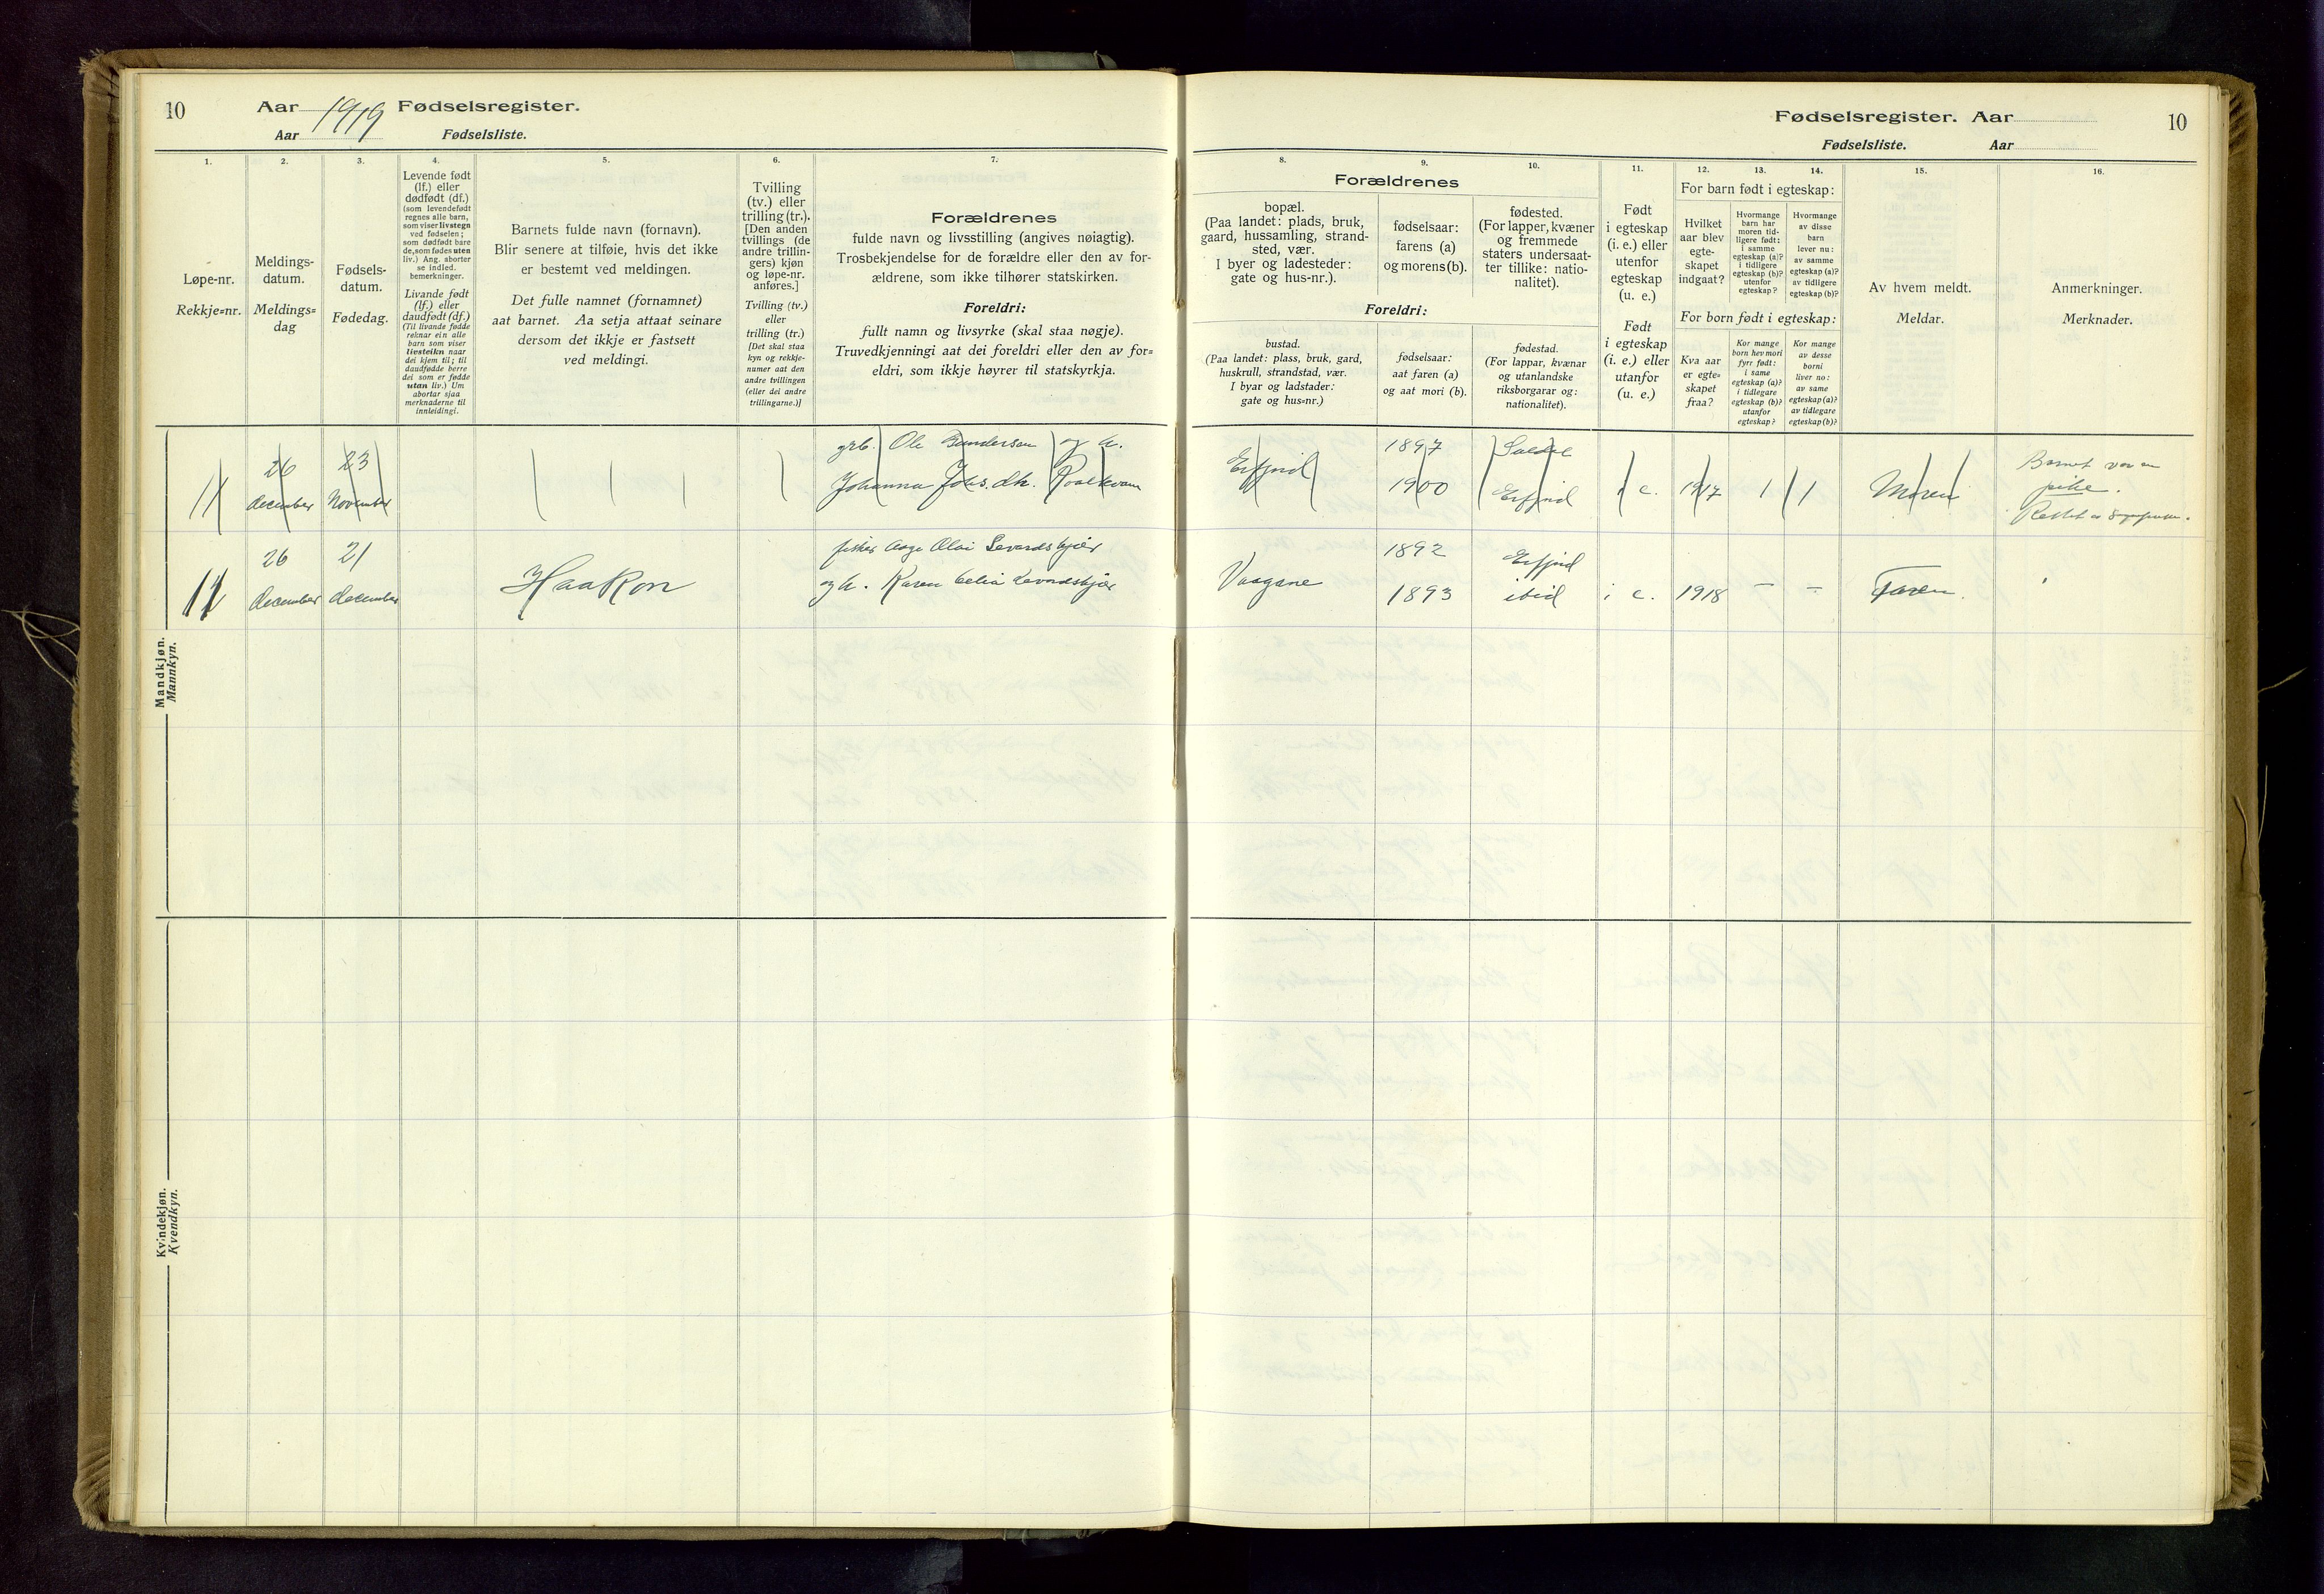 10
Aar 1919 Fødselsregister.
Aar Fødselsliste.
1.
Løpe-nr.
Rekkje=nr.
2.
Meldings-
datum.
Meldings=
dag
3.
Fødsels-
datum.
Fødedag.
4.
Levende født
(lf.) eller
dødfødt (df.)
(som levendefødt
regnes alle barn,
som viser livstegn
ved fødselen;
som dødfødt bare
de, som fødes uten
liv.) Ang. aborter
se indled.
bemerkninger.
Livande født
(lf.) eller
daudfødt (df.)
(Til livande fødde
reknar ein alle
barn som viser
livsteikn naar
dei kjem til; til
daudfødde berre
dei som er fødde
utan liv.) Um
abortar sjaa
merknaderne til
innleidingi.
5.
Barnets fulde navn (fornavn).
Blir senere at tilføie, hvis det ikke
er bestemt ved meldingen.
Det fulle namnet (fornamnet)
aat barnet. Aa setja attaat seinare
dersom det ikkje er fastsett
ved meldingi.
6.
Tvilling
(tv.) eller
trilling (tr.).
[Den anden
tvillings (de
andre trillin-
gers) kjøn
og løpe-nr.
anføres.]
Tvilling (tv.)
eller
trilling (tr.)
[Det skal staa
kyn og rekkje-
numer aat den
andre tvillingen
(eller dei andre
trillingarne.)]
7.
Forældrenes
fulde navn og livsstilling (angives nøiagtig).
Trosbekjendelse for de forældre eller den av for-
ældrene, som ikke tilhører statskirken.
Foreldri:
fullt namn og livsyrke (skal staa nøgje).
Truvedkjenningi aat dei foreldri eller den av for=
eldri, som ikkje høyrer til statskyrkja.
11
26
december
23
November
grb. Ole Gundersen og h.
Johanna Johs. dh. Roalkvam
11
26
december
21
december
Haakon
fisker Aage Olai Levardskjær
og h. Karen Celia Levardskjær
Mandkjøn.
Mannkyn.
Kvindekjøn.
Kvendkyn.
Fødselsregister. Aar
10
Fødselsliste. Aar
Forældrenes
8.
bopæl.
(Paa landet: plads, bruk,
gaard, hussamling, strand-
sted, vær.
I byer og ladesteder:
gate og hus-nr.).
9.
fødselsaar:
farens (a)
og morens (b).
10.
fødested.
(For lapper, kvæner
og fremmede
staters undersaat-
ter tillike: natio-
nalitet).
Foreldri:
bustad.
(Paa landet: plass, bruk, gard,
huskrull, strandstad, vær.
I byar og ladstader:
gate og hus=nr.)
fødselsaar:
aat faren (a)
og aat mori (b).
fødestad.
(For lappar, kvænar
og utanlandske
riksborgarar og:
nationalitet).
11.
Født
i egteskap
(i. e.) eller
utenfor
egteskap
(u. e.)
Født
i egteskap
(i. e.) eller
utanfor
(u. e.)
For barn født i egteskap:
12.
Hvilket
aar blev
egte-
skapet
indgaat?
13.
Hvormange
barn har
moren tid-
ligere født:
i samme
egteskap (a)?
i tidligere
egteskap (b)?
utenfor
egteskap?
14.
Hvormange
av disse
barn
lever nu:
av samme
egteskap (a)?
av tidligere
egteskap (b)?
For born født i egteskap:
Kva aar
er egte=
skapet
fraa?
Kor mange
born hev mori
fyrr født:
i same
egteskap (a)?
i tidlegare
egteskap (b)?
utanfor
egteskap?
Kor mange
av desse
borni
liver no:
av same
egteskap (a)?
av tidlegare
egteskap (b)?
15.
Av hvem meldt.
Meldar.
16.
Anmerkninger.
Merknader.
Erfjord
1897
1900
Erfjord
i e.
1917
1
1
Moren
Barnet var en
pike.
Rettet av
1892
Erfjord
1893
ibid
i e.
1918
-
-
Faren.